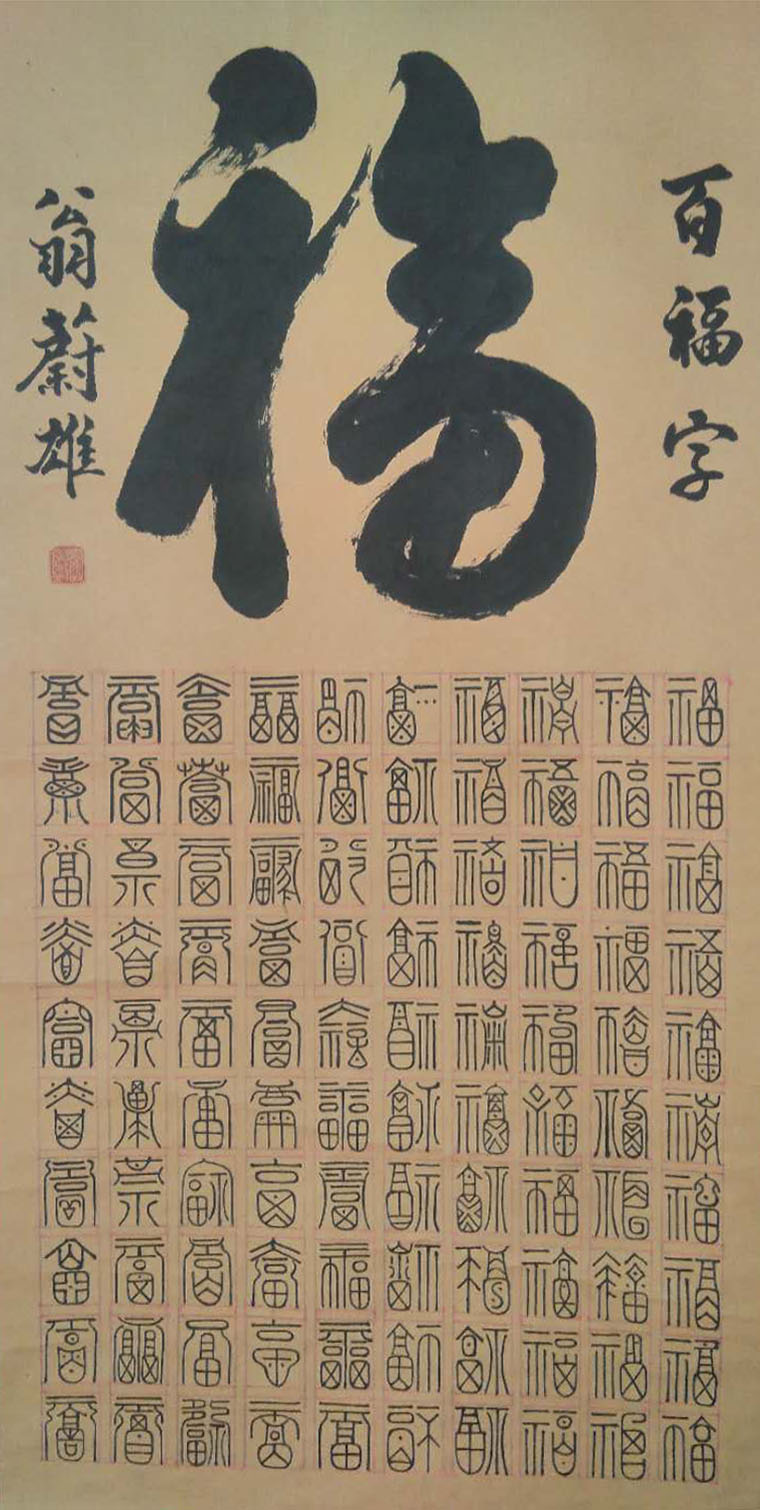 百福字
福
翁蔚雄
福福福福福福福福福福
福福福福福福福福福福
福福福福福福福福福福
福福福福福福福福福福
福福福福福福福福福福
福福福福福福福福福福
福福福福福福福福福福
福福福福福福福福福福
福福福福福福福福福福
福福福福福福福福福福